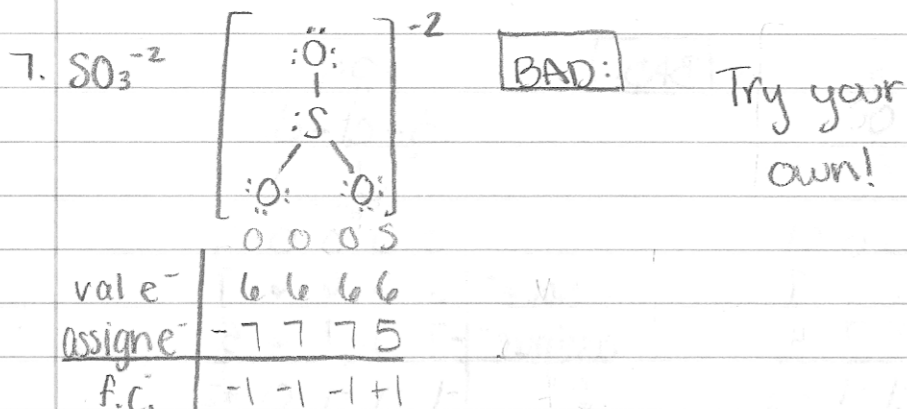 7. SO₃⁻² [ :Ö: ]⁻² BAD: Try your own!
:S
:O: :O:
O O O S
val e⁻ 6 6 6 6
assign e⁻ -7 7 7 5
f.c. -1 -1 -1 +1